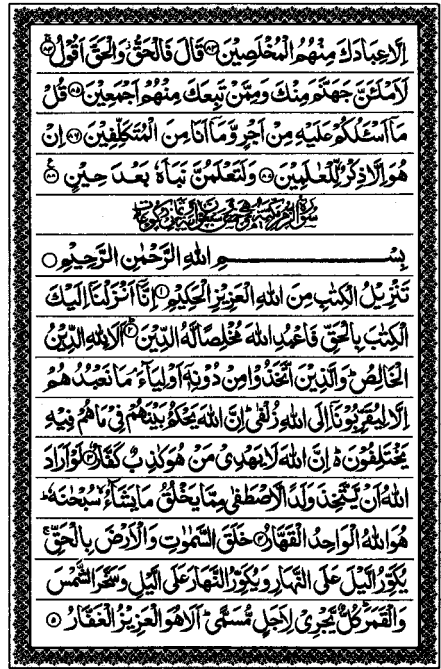 اِلَّا عِبَادَكَ مِنْهُمُ الْمُخْلَصِیْنَ ۝۸۳ قَالَ فَالْحَقُّ وَالْحَقَّ اَقُوْلُ ۝۸۴
لَاَمْلَـَٔنَّ جَهَنَّمَ مِنْكَ وَمِمَّنْ تَبِعَكَ مِنْهُمْ اَجْمَعِیْنَ ۝۸۵ قُلْ
مَاۤ اَسْـَٔلُكُمْ عَلَیْهِ مِنْ اَجْرٍ وَّمَاۤ اَنَا مِنَ الْمُتَكَلِّفِیْنَ ۝۸۶ اِنْ
هُوَ اِلَّا ذِكْرٌ لِّلْعٰلَمِیْنَ ۝۸۷ وَلَتَعْلَمُنَّ نَبَاَهٗ بَعْدَ حِیْنٍ ۝۸۸
بِسْمِ اللهِ الرَّحْمٰنِ الرَّحِیْمِ ۝
تَنْزِیْلُ الْكِتٰبِ مِنَ اللهِ الْعَزِیْزِ الْحَكِیْمِ ۝۱ اِنَّاۤ اَنْزَلْنَاۤ اِلَیْكَ
الْكِتٰبَ بِالْحَقِّ فَاعْبُدِ اللهَ مُخْلِصًا لَّهُ الدِّیْنَ ۝۲ اَلَا لِلّٰهِ الدِّیْنُ
الْخَالِصُ ؕ وَالَّذِیْنَ اتَّخَذُوْا مِنْ دُوْنِهٖۤ اَوْلِیَآءَ ۘ مَا نَعْبُدُهُمْ
اِلَّا لِیُقَرِّبُوْنَاۤ اِلَى اللهِ زُلْفٰی ؕ اِنَّ اللهَ یَحْكُمُ بَیْنَهُمْ فِیْ مَا هُمْ فِیْهِ
یَخْتَلِفُوْنَ ؕ۬ اِنَّ اللهَ لَا یَهْدِیْ مَنْ هُوَ كٰذِبٌ كَفَّارٌ ۝۳ لَوْ اَرَادَ
اللهُ اَنْ یَّتَّخِذَ وَلَدًا لَّاصْطَفٰی مِمَّا یَخْلُقُ مَا یَشَآءُ ۙ سُبْحٰنَهٗ ؕ
هُوَ اللهُ الْوَاحِدُ الْقَهَّارُ ۝۴ خَلَقَ السَّمٰوٰتِ وَالْاَرْضَ بِالْحَقِّ ۚ
یُكَوِّرُ الَّیْلَ عَلَى النَّهَارِ وَیُكَوِّرُ النَّهَارَ عَلَى الَّیْلِ وَسَخَّرَ الشَّمْسَ
وَالْقَمَرَ ؕ كُلٌّ یَّجْرِیْ لِاَجَلٍ مُّسَمًّی ؕ اَلَا هُوَ الْعَزِیْزُ الْغَفَّارُ ۝۵